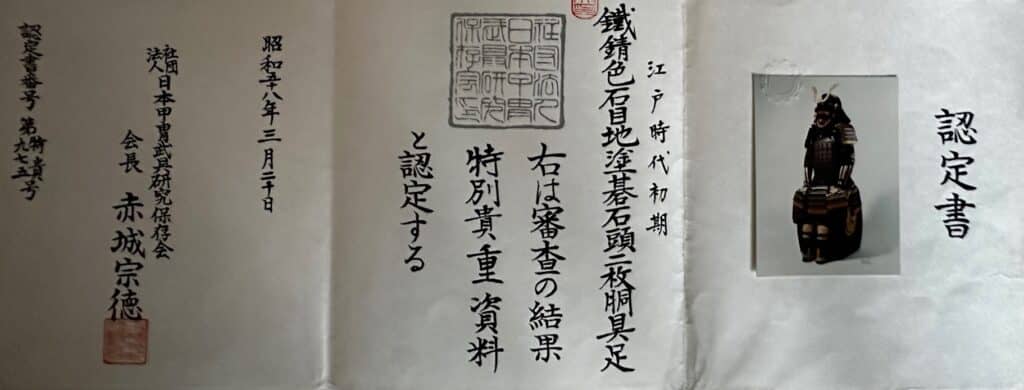 認定書
江戸時代初期
鐵錆色石目地塗碁石頭二枚胴具足
右は審査の結果
特別貴重資料
と認定する
社団法人日本甲冑武具研究保存会之印
昭和五十八年三月二十日
社団法人日本甲冑武具研究保存会
会長 赤城宗徳
認定書番号 第特貴九七五号